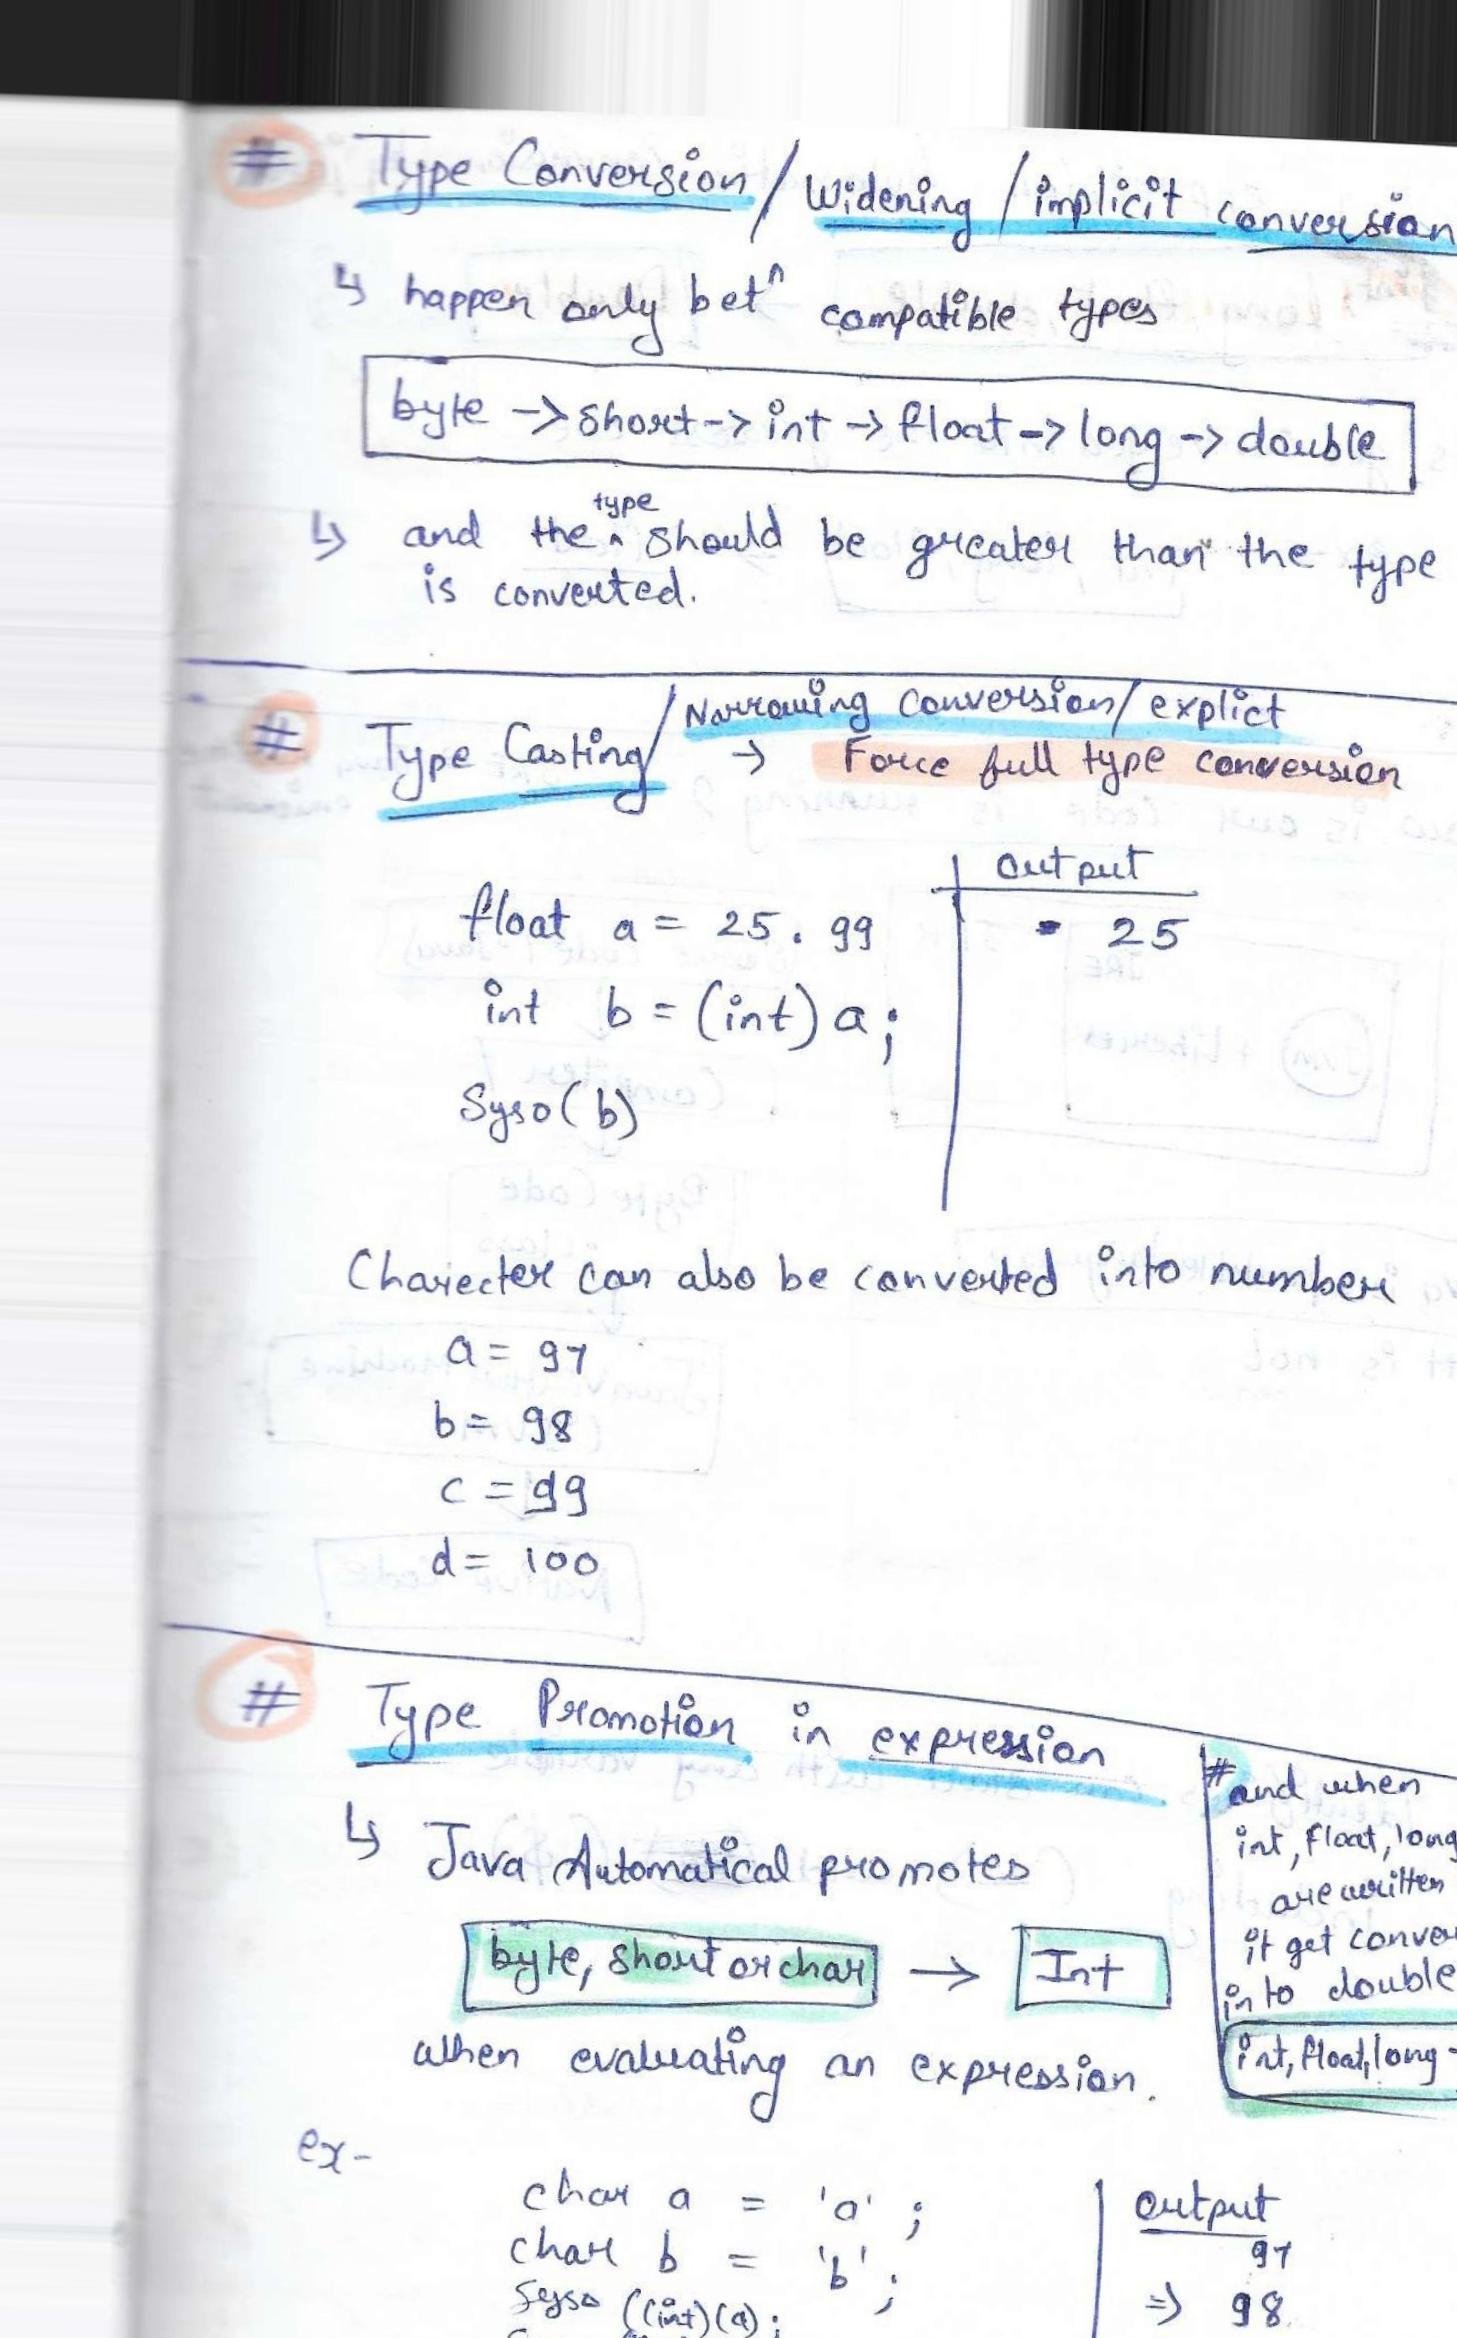 # Type Conversion / Widening / implicit conversion
↳ happen only betⁿ compatible types
byte -> short -> int -> float -> long -> double
↳ and the type should be greater than the type
is converted.
# Type Casting / Narrowing conversion / explict
→ Force full type conversion
output
float a = 25.99
25
int b = (int) a;
Syso(b)
Charecter can also be converted into number
a = 97
b = 98
c = 99
d = 100
# Type Promotion in expression
↳ Java Automatical promotes
byte, short or char → Int
when evaluating an expression.
# and when
int, float, long
are written
it get conver
into double
int, float, long -
ex-
char a = 'a';
char b = 'b';
Syso ((int)(a);
output
97
=> 98